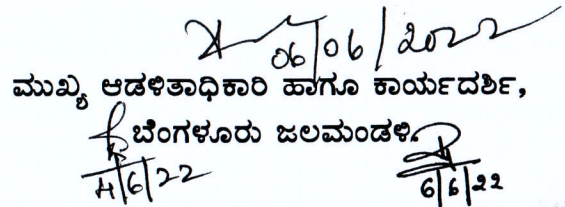 06/06/2022
ಮುಖ್ಯ ಆಡಳಿತಾಧಿಕಾರಿ ಹಾಗೂ ಕಾರ್ಯದರ್ಶಿ,
ಬೆಂಗಳೂರು ಜಲಮಂಡಳಿ.
4/6/22 6/6/22